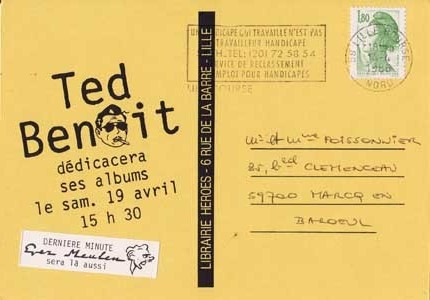 Ted
Benoit
dédicacera
ses albums
le sam. 19 avril
15 h 30
DERNIERE MINUTE
Ever Meulen
sera là aussi
LIBRAIRIE HEROES - 6 RUE DE LA BARRE - LILLE
HANDICAPE QUI TRAVAILLE N'EST PAS
TRAVAILLEUR HANDICAPE
TEL: (20) 72 58 54
SERVICE DE RECLASSEMENT
EMPLOI POUR HANDICAPES
BOURSE
1,80
LILLE
NORD
Mr et Mme POISSONNIER
85, bed CLEMENCEAU
59700 MARCQ EN
BAROEUL